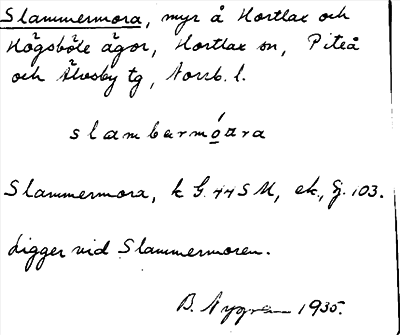 Slammermora, myr å Hortlax och
Högsböle ägor, Hortlax sn, Piteå
och Älvsby tg, Norrb. l.
slambarmóära
Slammermora, k G. 44 S M, ek., g. 103.
Ligger vid Slammermoren.
B. Nygren 1935.